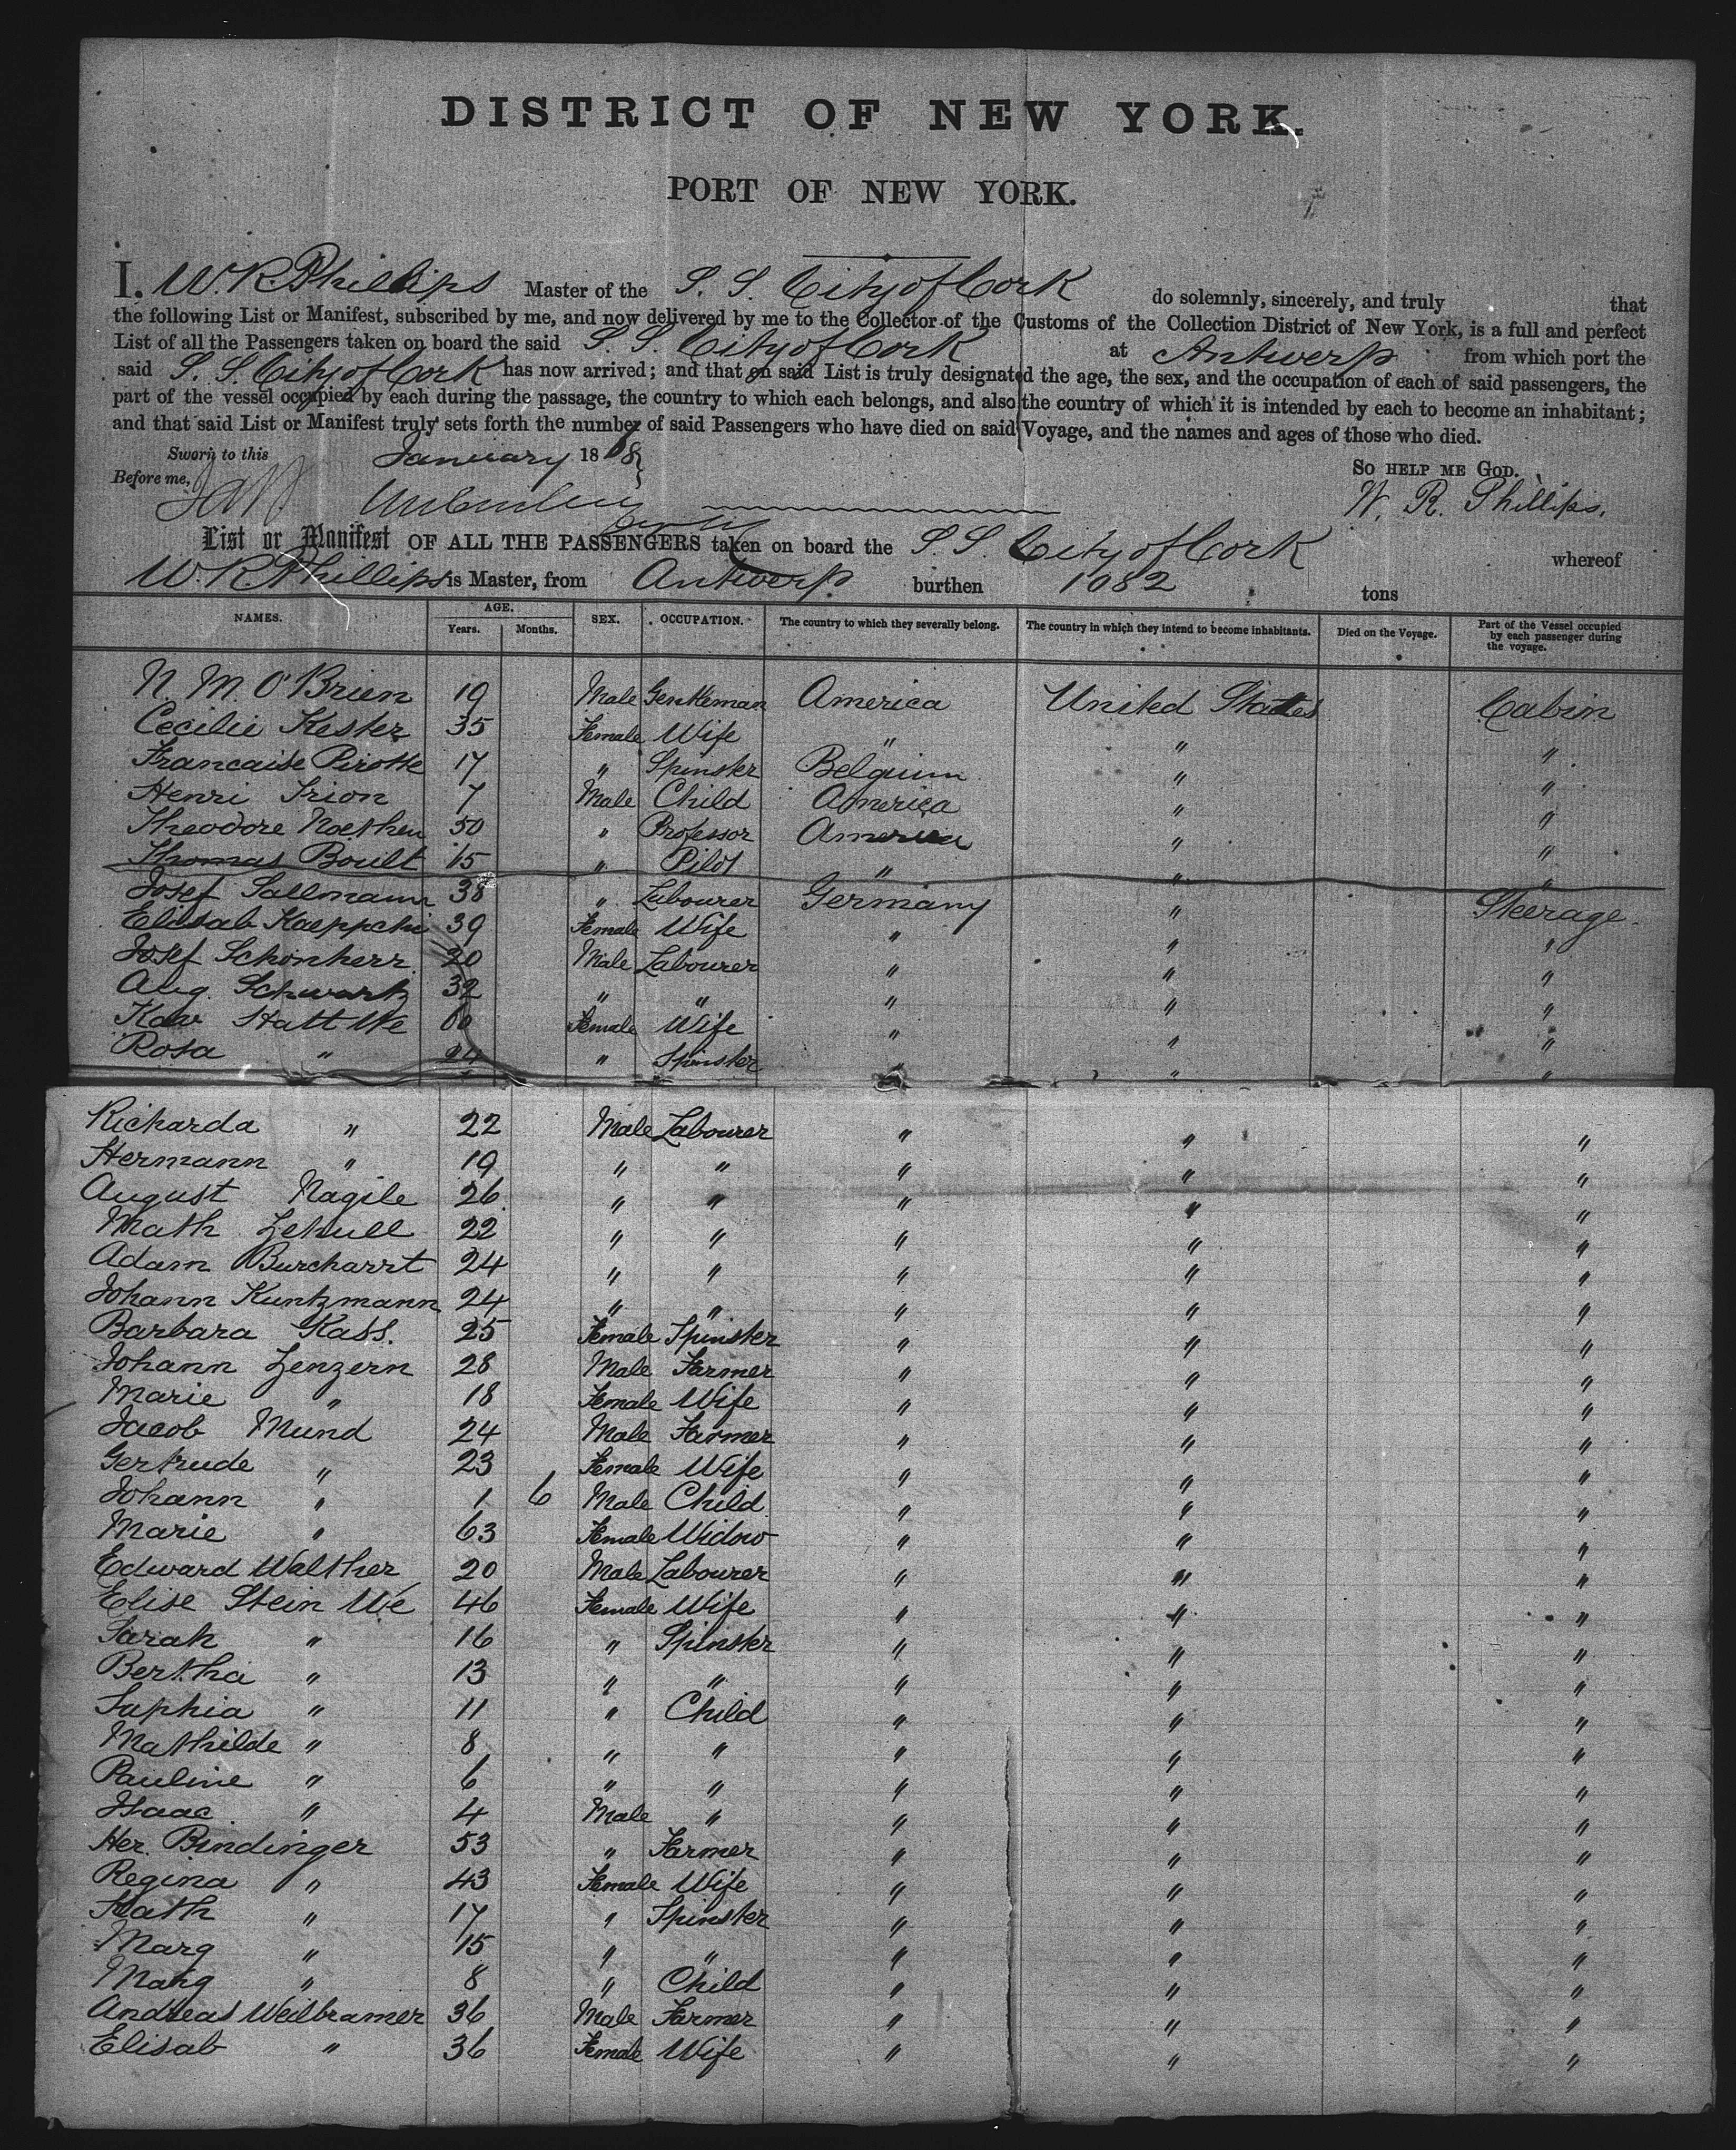 DISTRICT OF NEW YORK.
PORT OF NEW YORK.
I. W. R. Phillips Master of the S. S. City of Cork do solemnly, sincerely, and truly that
the following List or Manifest, subscribed by me, and now delivered by me to the Collector of the Customs of the Collection District of New York, is a full and perfect
List of all the Passengers taken on board the said S. S. City of Cork at Antwerp from which port the
said S. S. City of Cork has now arrived; and that on said List is truly designated the age, the sex, and the occupation of each of said passengers, the
part of the vessel occupied by each during the passage, the country to which each belongs, and also the country of which it is intended by each to become an inhabitant;
and that said List or Manifest truly sets forth the number of said Passengers who have died on said Voyage, and the names and ages of those who died.
Sworn to this January 1868 SO HELP ME GOD.
Before me, W. R. Phillips.
List or Manifest OF ALL THE PASSENGERS taken on board the S. S. City of Cork whereof
W. R. Phillips is Master, from Antwerp burthen 1082 tons
NAMES. AGE. Years. Months. SEX. OCCUPATION. The country to which they severally belong. The country in which they intend to become inhabitants. Died on the Voyage. Part of the Vessel occupied by each passenger during the voyage.
N. M. O'Brien 19 Male Gentleman America United States Cabin
Cecilie Kester 35 Female Wife " " "
Francaise Pirotte 17 " Spinster Belgium " "
Henri Irion 7 Male Child America " "
Theodore Noethen 50 " Professor America " "
Thomas Boult 65 " Pilot " " "
Josef Sallmann 38 " Labourer Germany " Steerage
Elisab Kaeppchi 39 Female Wife " " "
Josef Schonherr 20 Male Labourer " " "
Aug. Schwartz 32 " " " " "
Kav Statt We 60 Female Wife " " "
Rosa " 24 " Spinster " " "
Richarda " 22 Male Labourer " " "
Hermann " 19 " " " " "
August Nagile 26 " " " " "
Math Zehull 22 " " " " "
Adam Burcharrt 24 " " " " "
Johann Kuntzmann 24 " " " " "
Barbara Kass. 25 Female Spinster " " "
Johann Zenzern 28 Male Farmer " " "
Marie " 18 Female Wife " " "
Jacob Mund 24 Male Farmer " " "
Gertrude " 23 Female Wife " " "
Johann " 1 6 Male Child " " "
Marie " 63 Female Widow " " "
Edward Walther 20 Male Labourer " " "
Elise Stein We 46 Female Wife " " "
Sarah " 16 " Spinster " " "
Bertha " 13 " " " " "
Suphia " 11 " Child " " "
Mathilde " 8 " " " " "
Pauline " 6 " " " " "
Isaac " 4 Male " " " "
Her. Bindinger 53 " Farmer " " "
Regina " 43 Female Wife " " "
Kath " 17 " Spinster " " "
Marg " 15 " " " " "
Marg " 8 " Child " " "
Andreas Weilbramer 36 Male Farmer " " "
Elisab " 36 Female Wife " " "